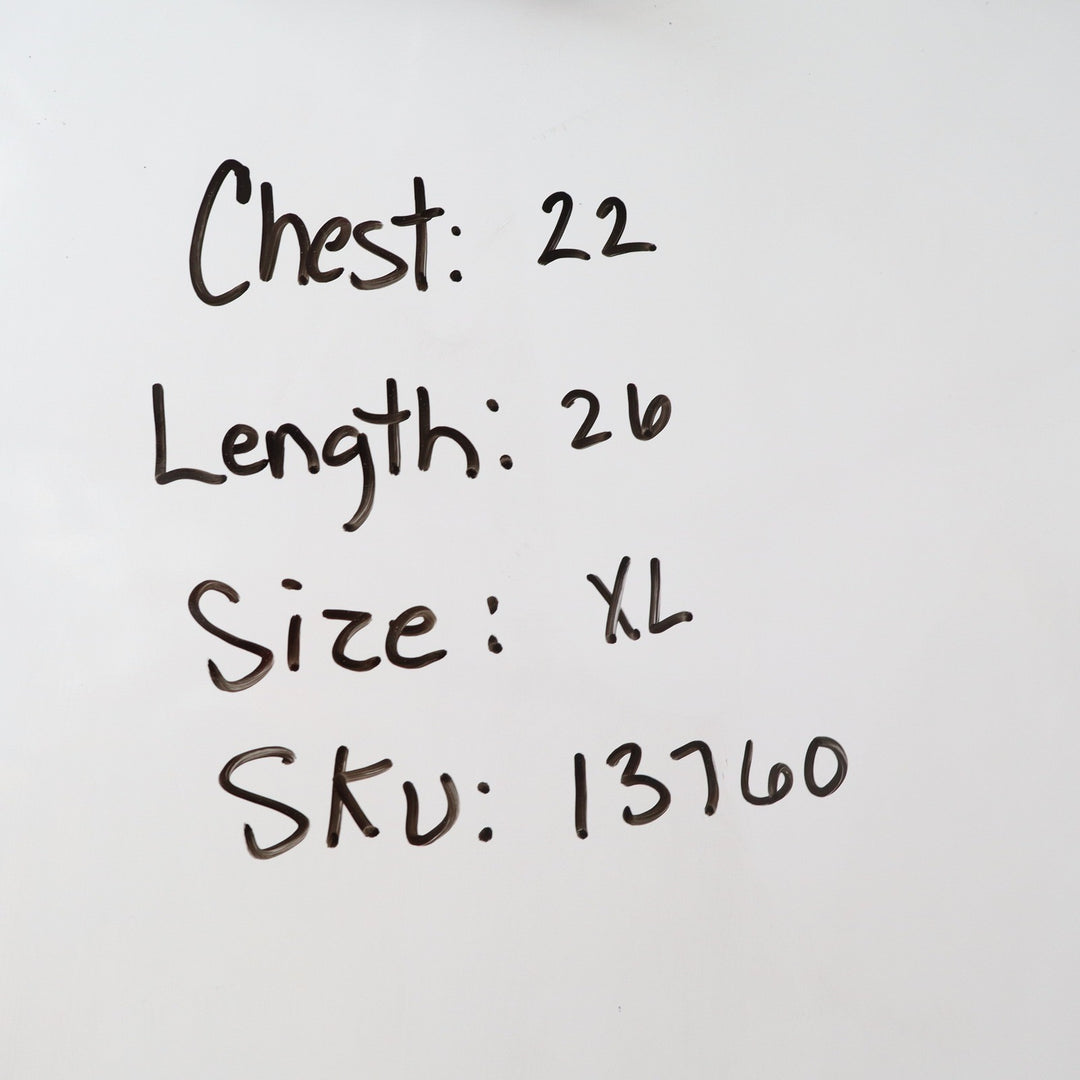 Chest: 22
Length: 26
Size: XL
SKU: 13760